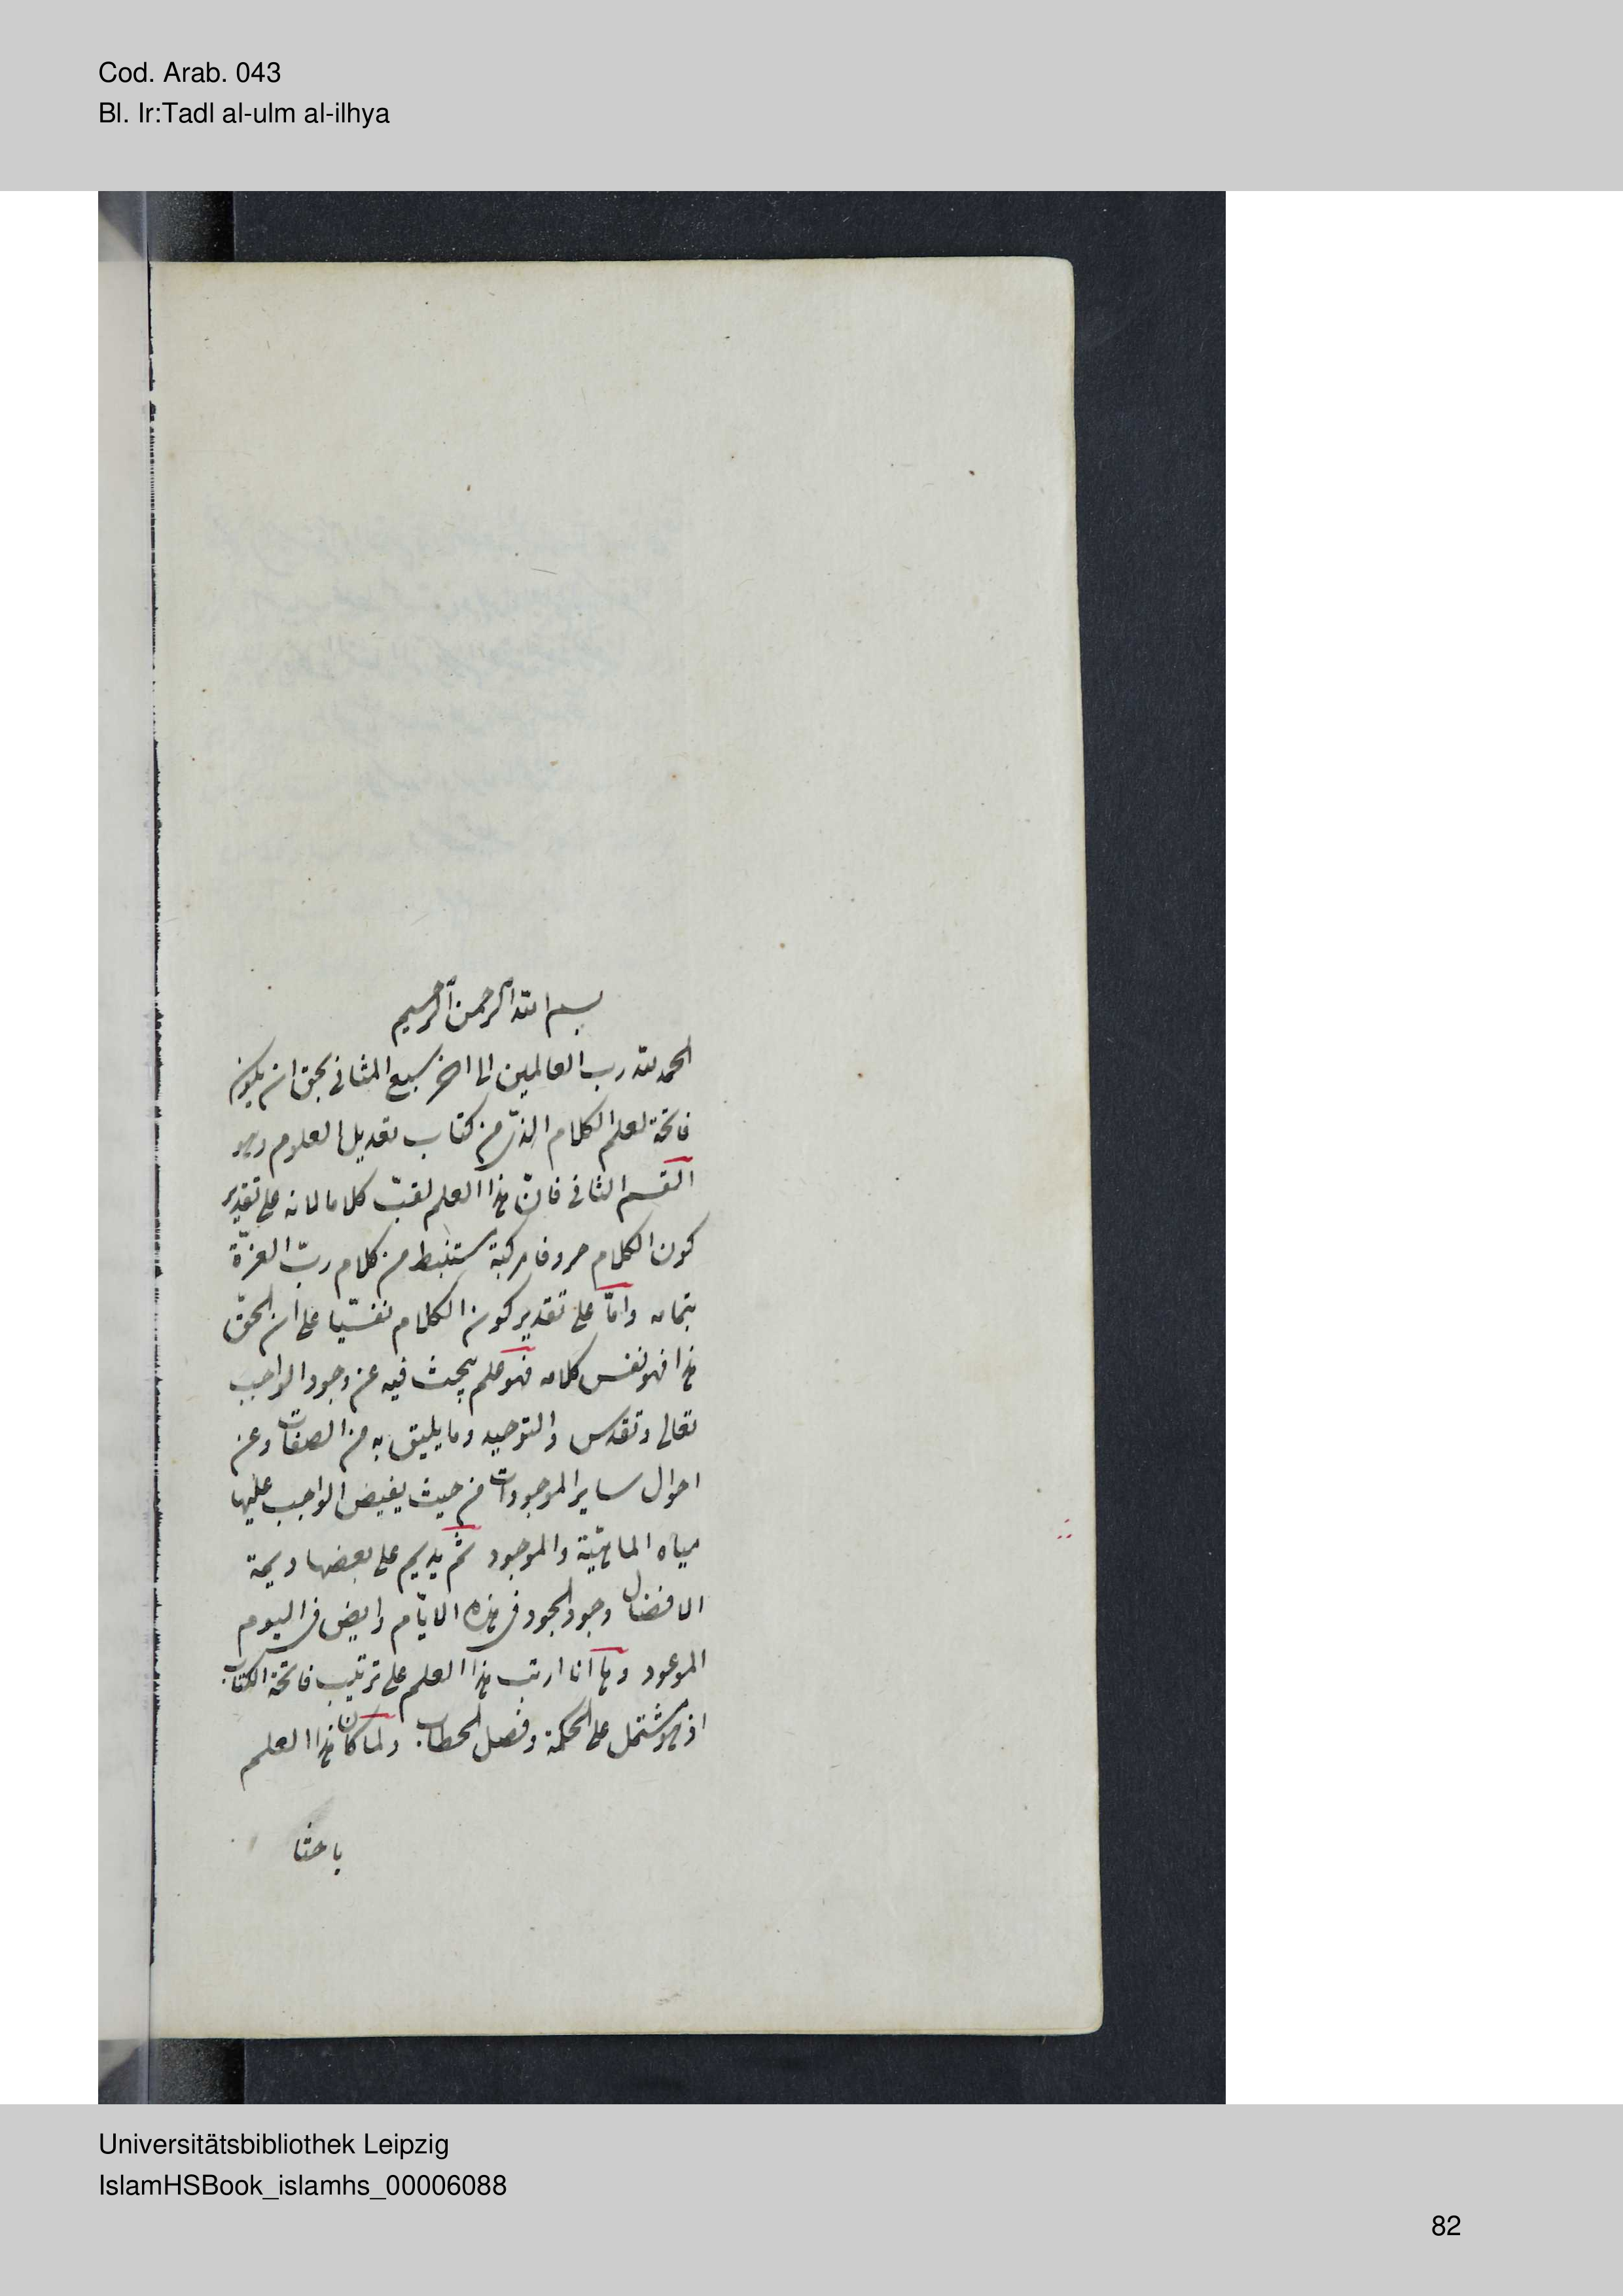 Cod. Arab. 043
Bl. Ir:Tadl al-ulm al-ilhya
بسم الله الرحمن الرحيم
الحمد لله رب العالمين الى اخر سبع المثانى بحق ان يكون
فاتحة لعلم الكلام الذى من كتاب تعديل العلوم وهو
القسم الثانى فانّ هذا العلم لقب كلاما لانه على تقدير
كون الكلام حروفا مركبة مستنبط من كلام ربّ العزّة
بتمامه وامّا على تقدير كون الكلام نفسيّا على ان الحقّ
هذا فهو نفس كلامه فهو علم يبحث فيه عن وجود الواجب
تعالى وتقدس والتوحيد وما يليق به من الصفات وعن
احوال ساير الموجودات من حيث يفيض الواجب عليها
مياه الماهيّة والموجود ثم يديم على بعضها ديمة
الافضال وجود الجود فى هذه الايّام وايض فى اليوم
الموعود وها انا ارتب هذا العلم على ترتيب فاتحة الكتاب
اذ هو مشتمل على الحكمة وفصل الخطاب. ولما كان هذا العلم
باحثا
Universitätsbibliothek Leipzig
IslamHSBook_islamhs_00006088
82